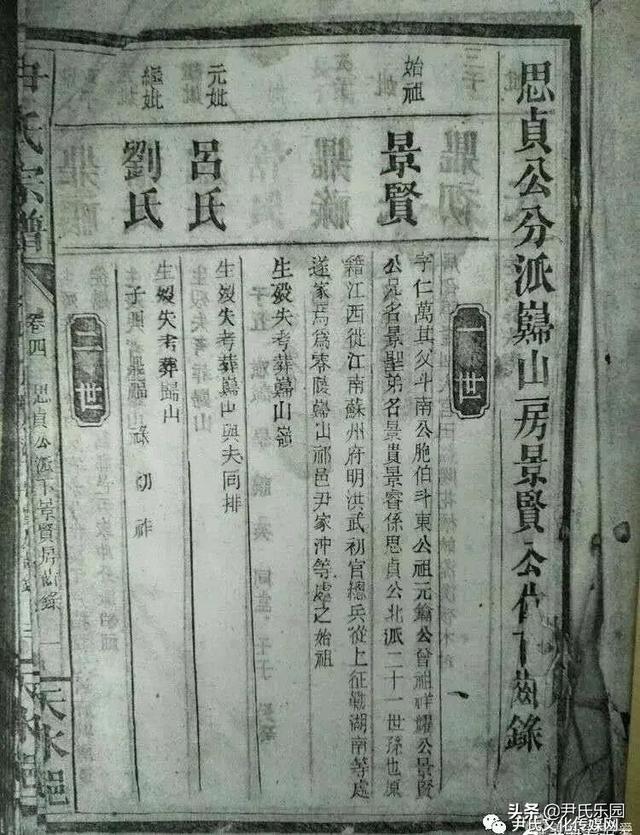 思貞公分派巋山房景賢公位下齒錄
一世
始祖
景賢
字仁萬其父斗南公胞伯斗東公祖元鑰公曾祖祥耀公景賢
公兄名景聖弟名景貴景睿係思貞公北派二十一世孫也原
籍江西從江南蘇州府明洪武初官總兵從上征戰湖南等處
遂家焉為零陵巋山祁邑尹家沖等處之始祖
生歿失考葬巋山嶺
元妣
呂氏
生歿失考葬巋山與夫同排
繼妣
劉氏
生歿失考葬歸山
子興 鼎福 祿 初 祚
二世
尹氏宗譜
卷四
思貞公派下景賢房齒錄
天水郡
头条 @尹氏乐园
尹氏文化传媒网